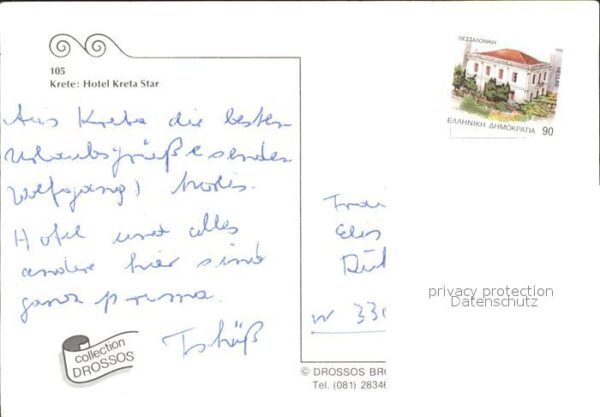 105
Krete: Hotel Kreta Star
Aus Kreta die besten
Urlaubsgrüße senden
Wolfgang,
Hotel und alles
andere hier sind
ganz prima.
Tschüß
collection
DROSSOS
ΘΕΣΣΑΛΟΝΙΚΗ
HELLAS
ΕΛΛΗΝΙΚΗ ΔΗΜΟΚΡΑΤΙΑ 90
Frau
Elis
W 330
privacy protection
Datenschutz
© DROSSOS BR
Tel. (081) 28346